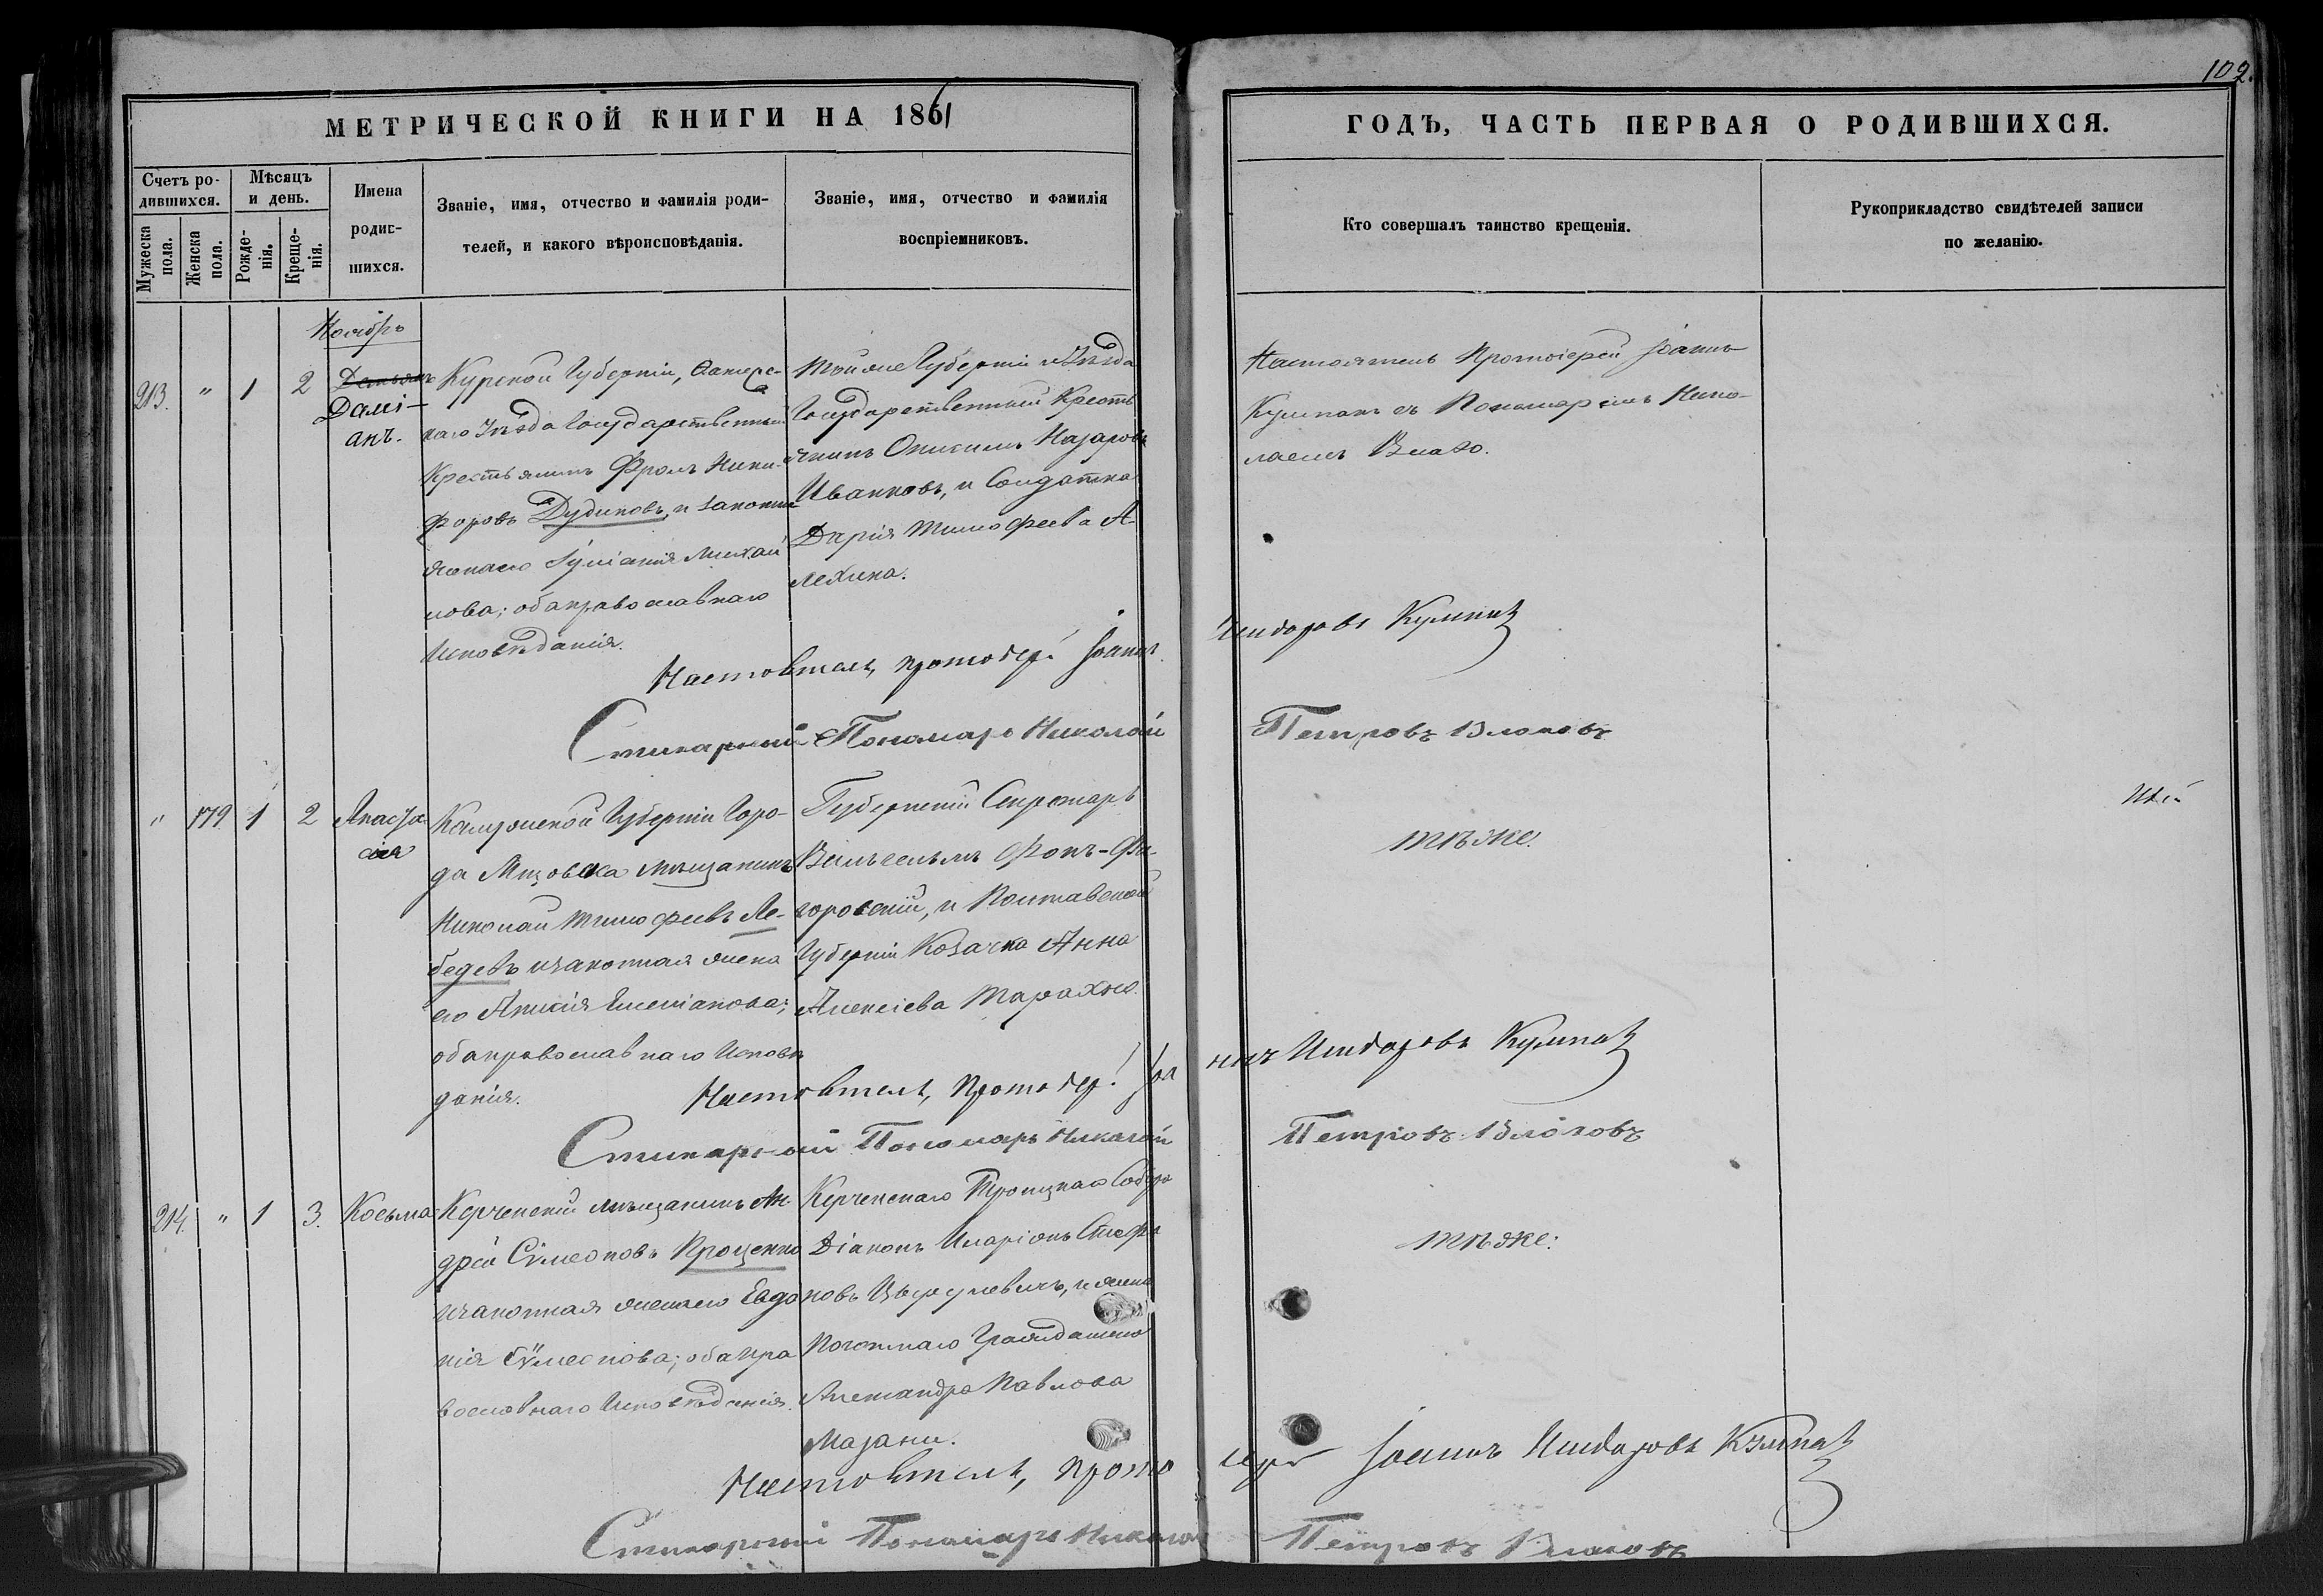 102.
МЕТРИЧЕСКОЙ КНИГИ НА 1861
ГОДЪ, ЧАСТЬ ПЕРВАЯ О РОДИВШИХСЯ.
Счетъ ро-
дившихся.
Мужеска
пола.
Женска
пола.
Мѣсяцъ
и день.
Рожде-
нія.
Креще-
нія.
Имена
родив-
шихся.
Званіе, имя, отчество и фамилія роди-
телей, и какого вѣроисповѣданія.
Званіе, имя, отчество и фамилія
воспріемниковъ.
Кто совершалъ таинство крещенія.
Рукоприкладство свидѣтелей записи
по желанію.
Ноябрь
213. " 1 2
Даміанъ
Дамі-
анъ.
Курской Губерніи,
каго Уѣзда Государственный
Крестьянинъ Фролъ Ники-
форовъ Дудиковъ, и законная
жена его Іуліанія Михай
лова; оба православнаго
Исповѣданія.
Той же Губерніи и Уѣзда
Государственный Кресть
янинъ Онисимъ Назаровъ
Иванковъ, и Солдатка
Дарія Тимофеева А-
лехина.
Настоятель Протоіерей Іоаннъ
Кумпанъ съ Пономаремъ Нико-
лаемъ
Настоятель, протоіер. Іоаннъ
Исидоровъ Кумпанъ
Стихарный Пономарь Николай
Петровъ Влоховъ
" 179 1 2
Анаста
сія
Калужской Губерніи Горо-
да Мещовска мѣщанинъ
Николай Тимофеевъ Ле-
бедевъ и законная жена
его Анисія Емеліанова;
оба православнаго Исповѣ
данія.
Губернскій Секретарь
Вильгельмъ Фонъ-Фи-
горовскій, и Полтавской
Губерніи Козачка Анна
Алексіева
тѣже.
Настоятель, Протоіер. Іоа
ннъ Исидоровъ Кумпанъ
Стихарный Пономарь Николай
Петровъ Влоховъ
214. " 1 3.
Косьма
Керченскій мѣщанинъ Ан-
дрей Сѵмеоновъ Проценко
и законная жена его Евдо
кія Сѵмеонова; оба пра
вославнаго Исповѣданія.
Керченскаго Троицкаго Собора
Діаконъ Иларіонъ Стефа
новъ и жена
Почетнаго Гражданина
Александра Павлова
Мазани.
тѣже:
Настоятель, прото
іерей Іоаннъ Исидоровъ Кумпанъ
Стихарный Пономарь Николай
Петровъ Влоховъ